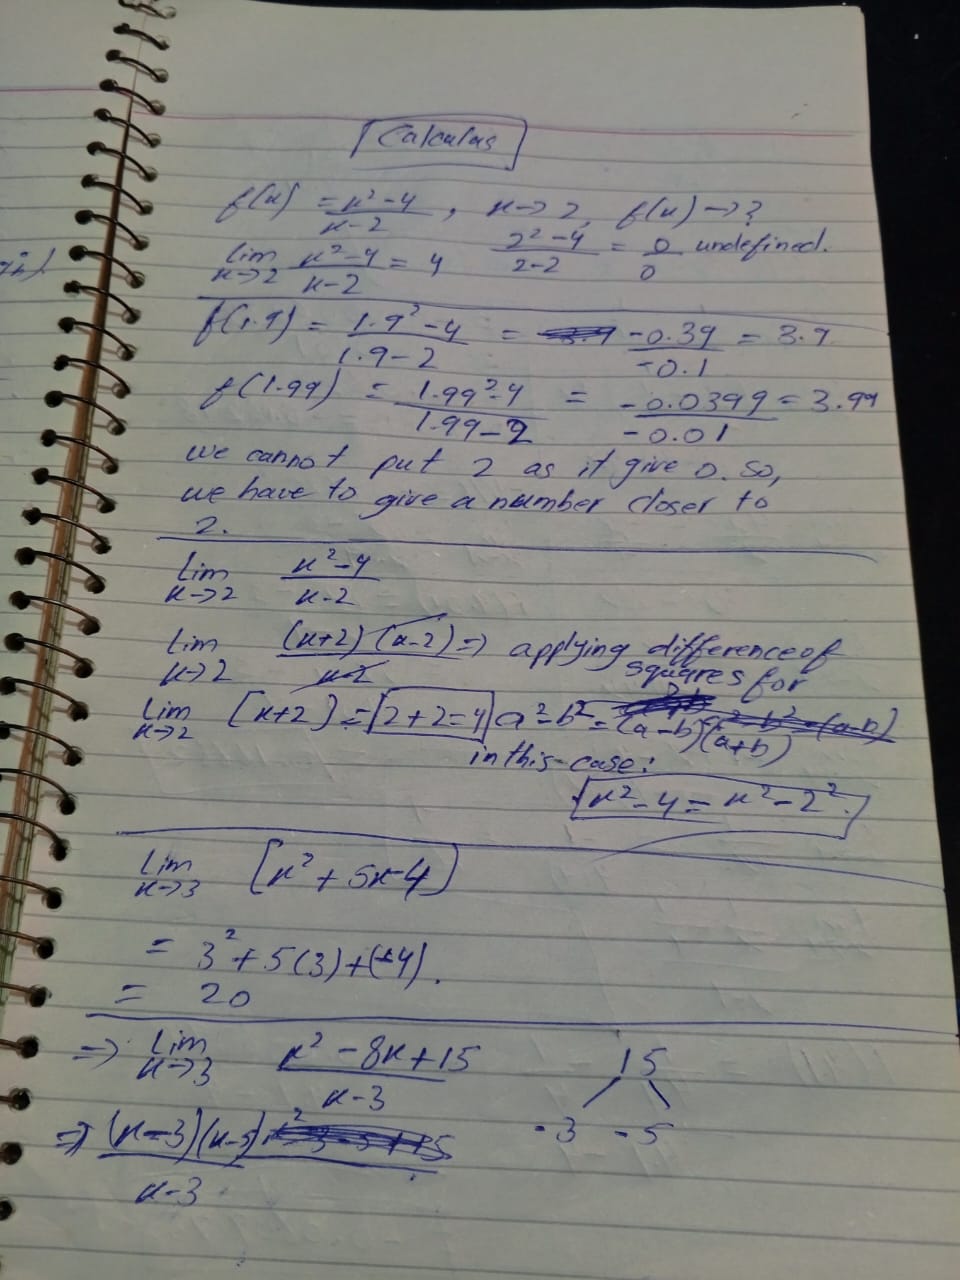 Calculas
f(x) = x²-4/x-2, x→2, f(x)→?
lim x→2 x²-4/x-2 = 4 2²-4/2-2 = 0/0 undefined.
f(1.9) = 1.9²-4/1.9-2 = -0.39/-0.1 = 3.9
f(1.99) = 1.99²-4/1.99-2 = -0.0399/-0.01 = 3.99
we cannot put 2 as it give 0. So,
we have to give a number closer to
2.
lim x→2 x²-4/x-2
lim x→2 (x+2)(x-2)/x-2 => applying difference of
squares for
lim x→2 [x+2] = 2+2=4 a²-b² = (a-b)(a+b)
in this case:
x²-4 = x²-2².
lim x→3 [x²+5x-4]
= 3²+5(3)+(-4).
= 20
=> lim x→3 x²-8x+15/x-3 15
=> (x-3)(x-5)/x-3 -3 -5